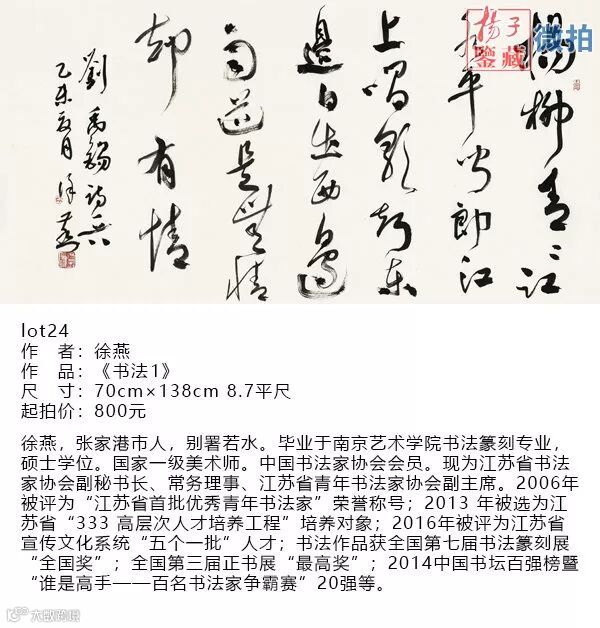 楊柳青〻江
水平聞郎江
上唱歌聲東
邊日出西邊
雨道是無情
却有情
劉禹錫詩一首
乙未夏月徐燕
揚子
鑒藏
微拍
lot24
作 者：徐燕
作 品：《书法1》
尺 寸：70cm×138cm 8.7平尺
起拍价：800元
徐燕，张家港市人，别署若水。毕业于南京艺术学院书法篆刻专业，
硕士学位。国家一级美术师。中国书法家协会会员。现为江苏省书法
家协会副秘书长、常务理事、江苏省青年书法家协会副主席。2006年
被评为“江苏省首批优秀青年书法家”荣誉称号；2013 年被选为江
苏省“333 高层次人才培养工程”培养对象；2016年被评为江苏省
宣传文化系统“五个一批”人才；书法作品获全国第七届书法篆刻展
“全国奖”；全国第三届正书展“最高奖”；2014中国书坛百强榜暨
“谁是高手——百名书法家争霸赛”20强等。
大数跨境